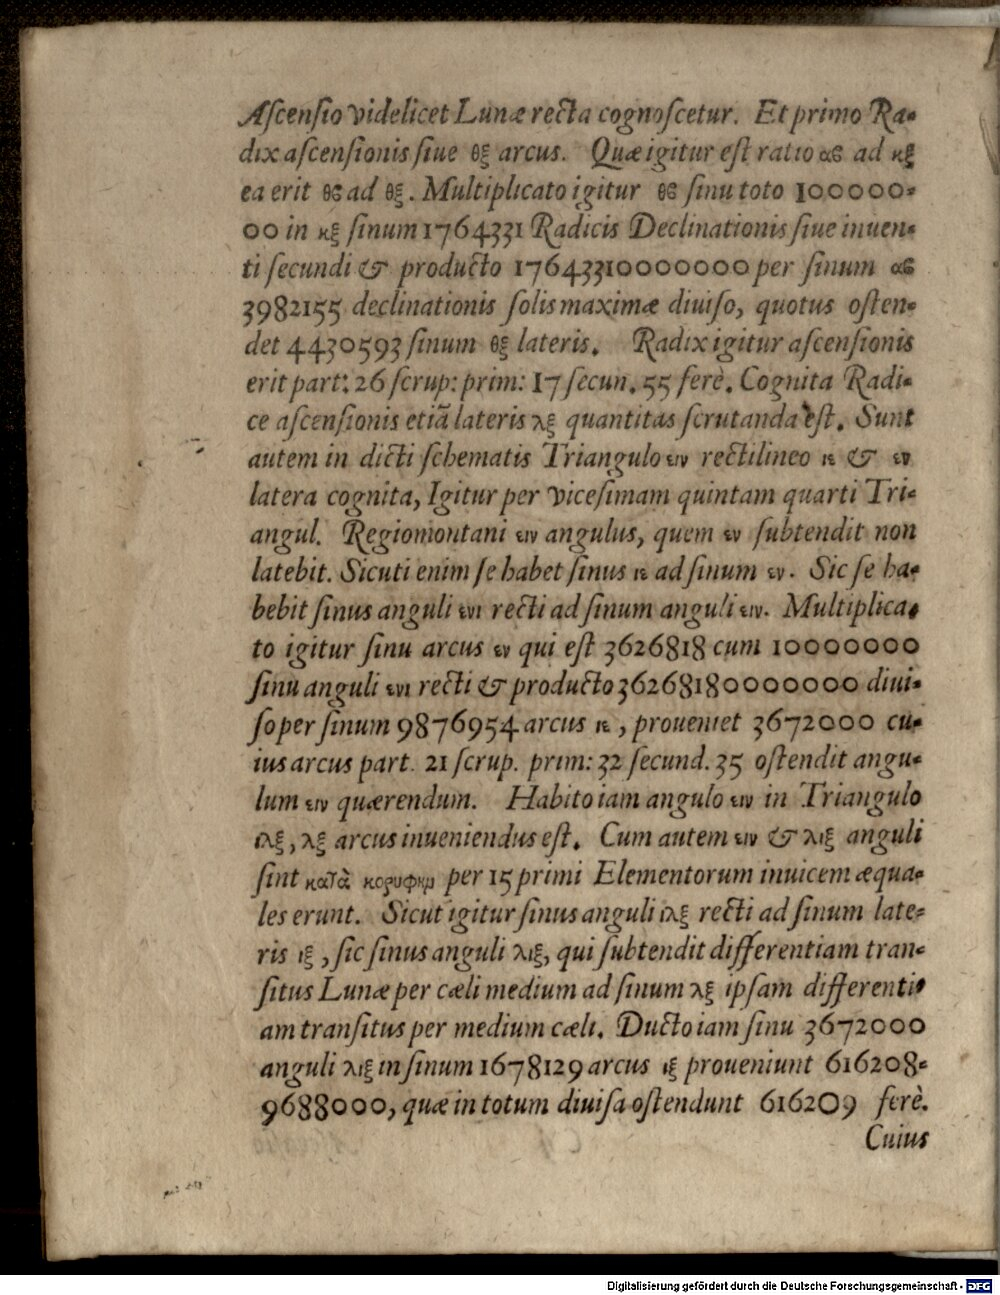 Aſcenſio videlicet Lunæ recta cognoſcetur. Et primo Ra-
dix aſcenſionis ſiue θξ arcus. Quæ igitur eſt ratio αϐ ad κξ
ea erit θϐ ad θξ. Multiplicato igitur θϐ ſinu toto 100000-
00 in κξ ſinum 1764331 Radicis Declinationis ſiue inuen-
ti ſecundi & producto 17643310000000 per ſinum αϐ
3982155 declinationis ſolis maximæ diuiſo, quotus oſten-
det 4430593 ſinum θξ lateris. Radix igitur aſcenſionis
erit part: 26 ſcrup: prim: 17 ſecun. 55 ferè. Cognita Radi-
ce aſcenſionis etiã lateris λξ quantitas ſcrutanda eſt. Sunt
autem in dicti ſchematis Triangulo ειν rectilineo ιε & εν
latera cognita, Igitur per viceſimam quintam quarti Tri-
angul. Regiomontani ειν angulus, quem εν ſubtendit non
latebit. Sicuti enim ſe habet ſinus ιε ad ſinum εν. Sic ſe ha-
bebit ſinus anguli ενι recti ad ſinum anguli ειν. Multiplica-
to igitur ſinu arcus εν qui eſt 3626818 cum 10000000
ſinu anguli ενι recti & producto 36268180000000 diui-
ſo per ſinum 9876954 arcus ιε, proueniet 3672000 cu-
ius arcus part. 21 ſcrup. prim: 32 ſecund. 35 oſtendit angu-
lum ειν quærendum. Habito iam angulo ειν in Triangulo
ιλξ, λξ arcus inueniendus eſt. Cum autem ειν & λιξ anguli
ſint κατὰ κορυφὴν per 15 primi Elementorum inuicem æqua-
les erunt. Sicut igitur ſinus anguli ιλξ recti ad ſinum late-
ris ιξ, ſic ſinus anguli λιξ, qui ſubtendit differentiam tran-
ſitus Lunæ per cæli medium ad ſinum λξ ipſam differenti-
am tranſitus per medium cæli. Ducto iam ſinu 3672000
anguli λιξ in ſinum 1678129 arcus ιξ proueniunt 616208-
9688000, quæ in totum diuiſa oſtendunt 616209 ferè.
Cuius
Digitalisierung gefördert durch die Deutsche Forschungsgemeinschaft - DFG